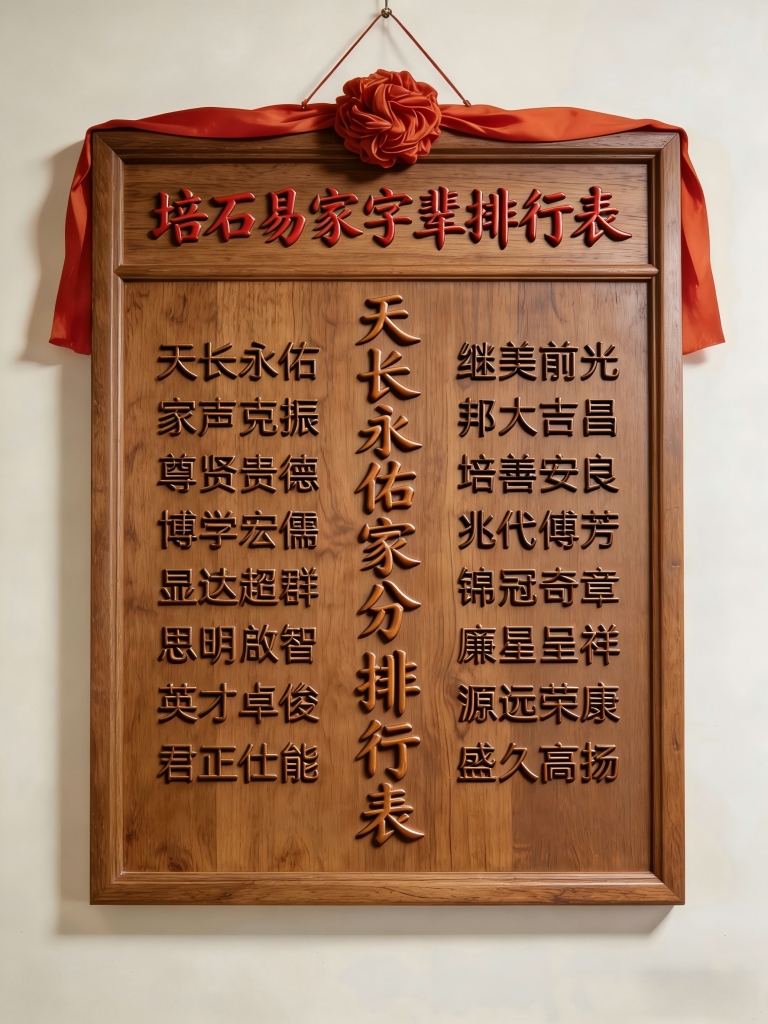 培石易家字辈排行表
天长永佑家分排行表
天长永佑
家声克振
尊贤贵德
博学宏儒
显达超群
思明啟智
英才卓俊
君正仕能
继美前光
邦大吉昌
培善安良
兆代傅芳
锦冠奇章
廉星呈祥
源远荣康
盛久高扬